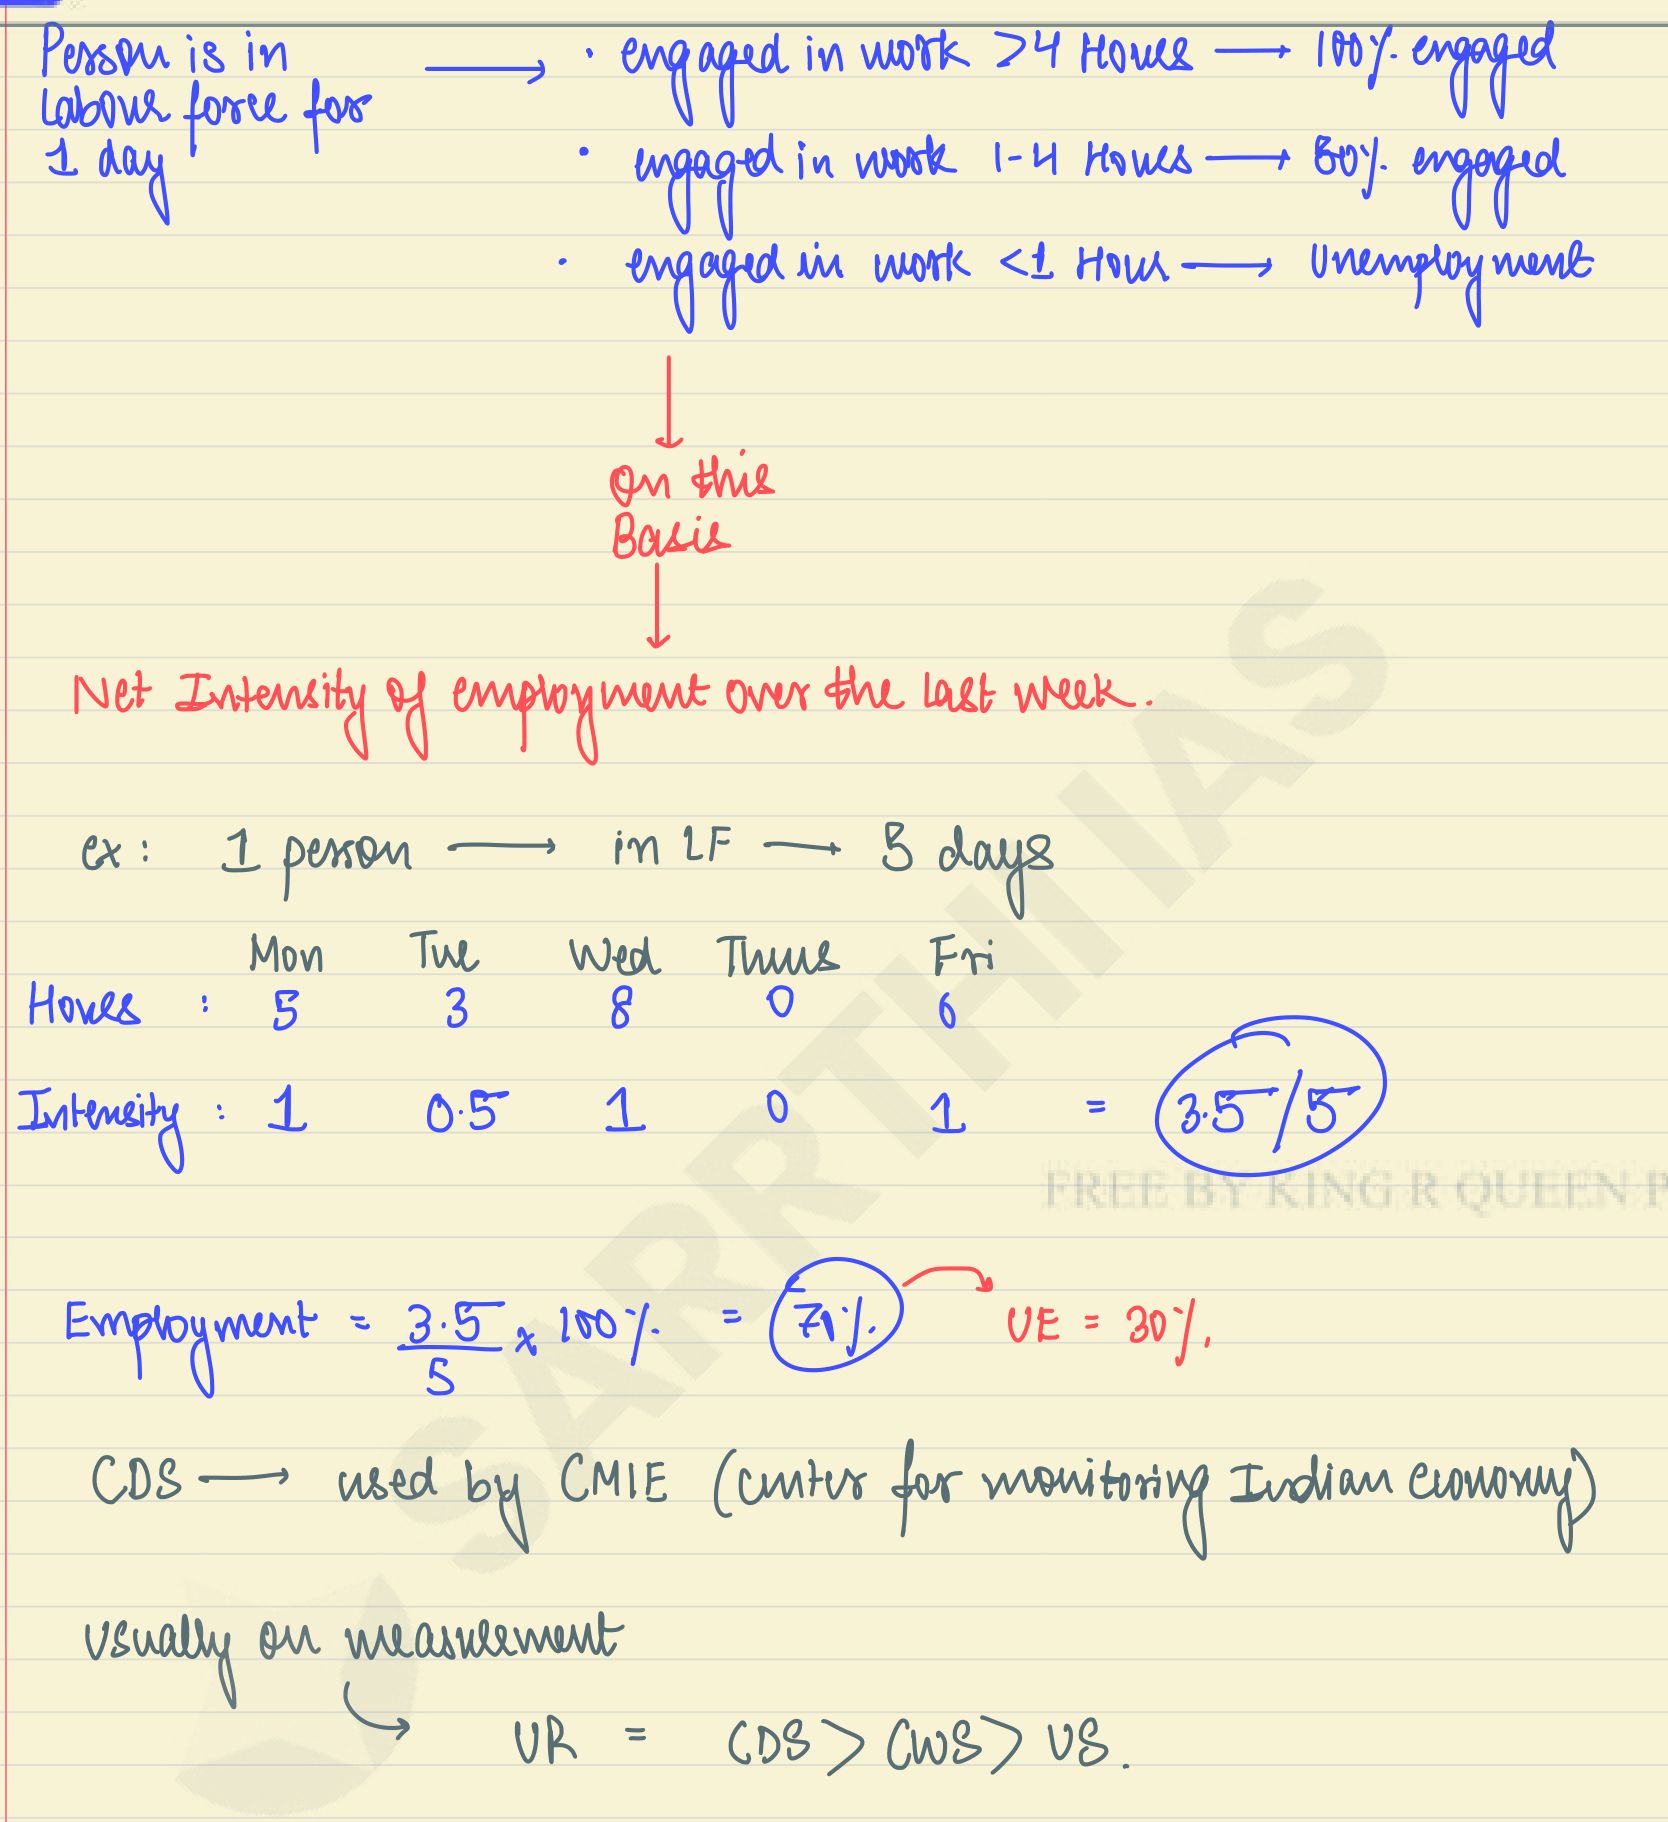 Person is in labour force for 1 day → · engaged in work >4 Hours → 100% engaged
· engaged in work 1-4 Hours → 50% engaged
· engaged in work <1 Hour → Unemployment
On this
Basis
Net Intensity of employment over the last week.
ex: 1 person → in LF → 5 days
Mon Tue Wed Thurs Fri
Hours : 5 3 8 0 6
Intensity : 1 0.5 1 0 1 = 3.5/5
FREE BY KING R QUEEN P
Employment = 3.5/5 x 100% = 70% UE = 30%.
CDS → used by CMIE (center for monitoring Indian economy)
usually on measurement
UR = CDS > CWS > US.
SARRTHI IAS